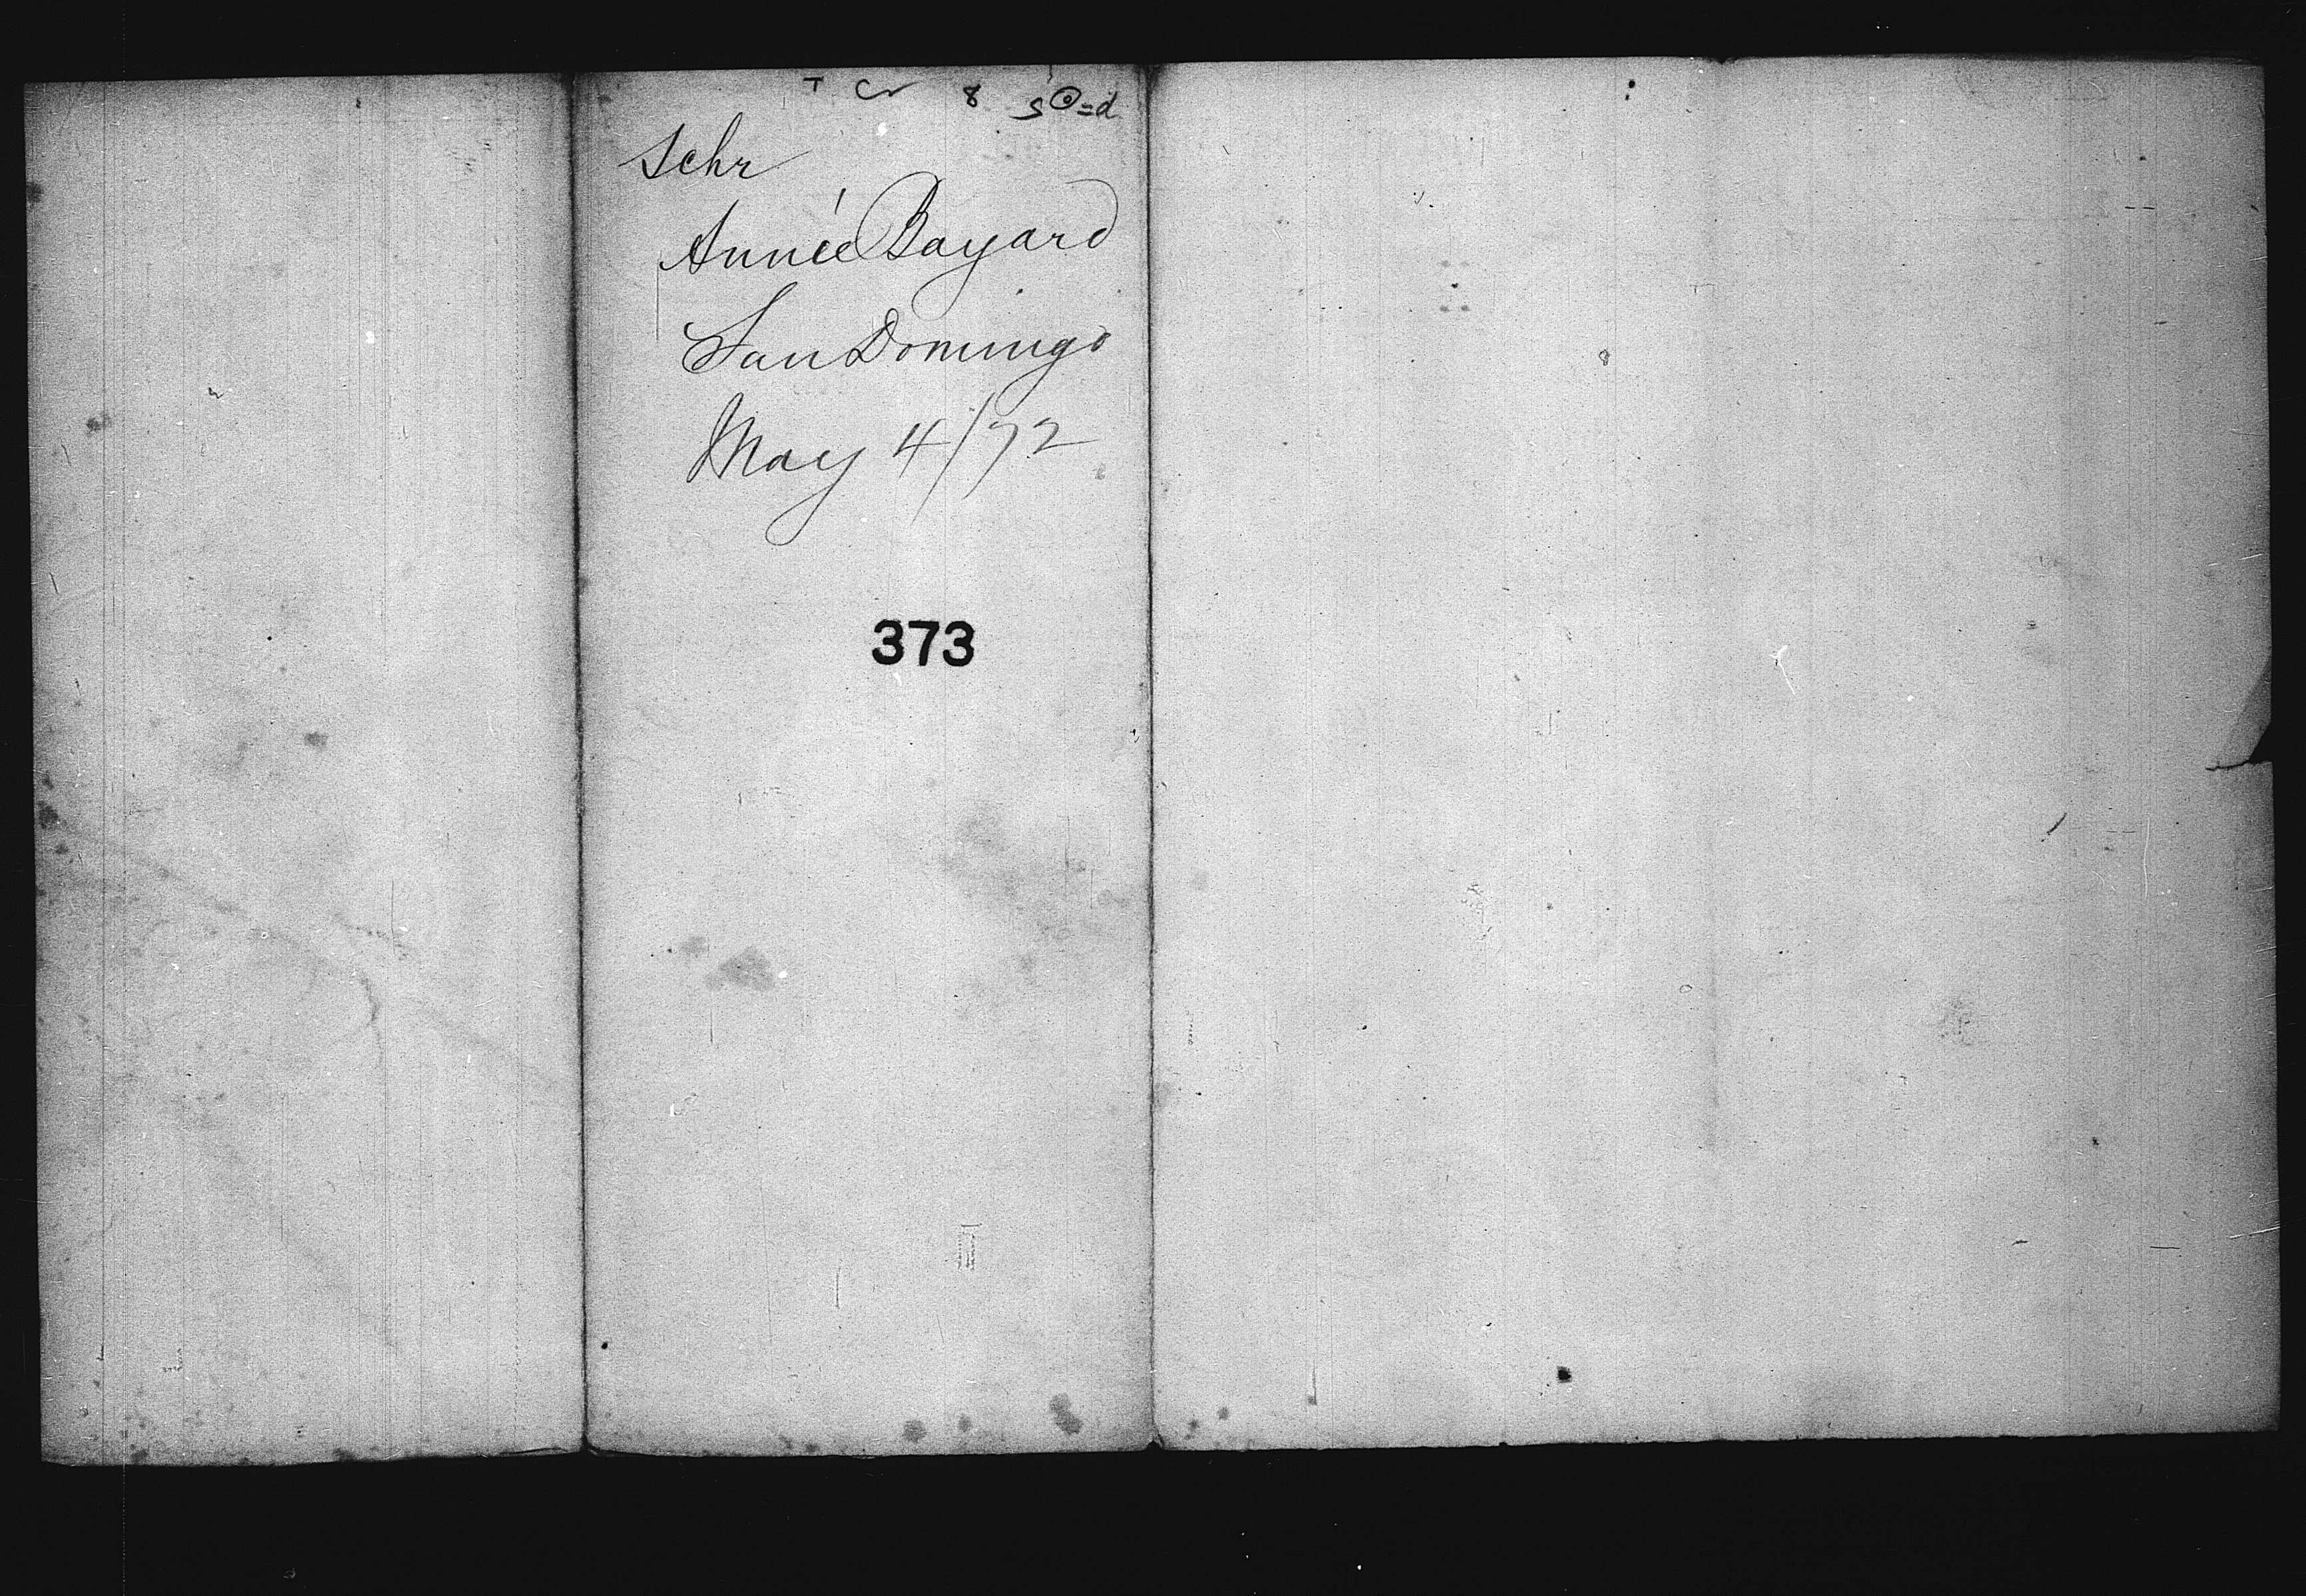 Schr
Annie Bayard
San Domingo
May 4/72
373